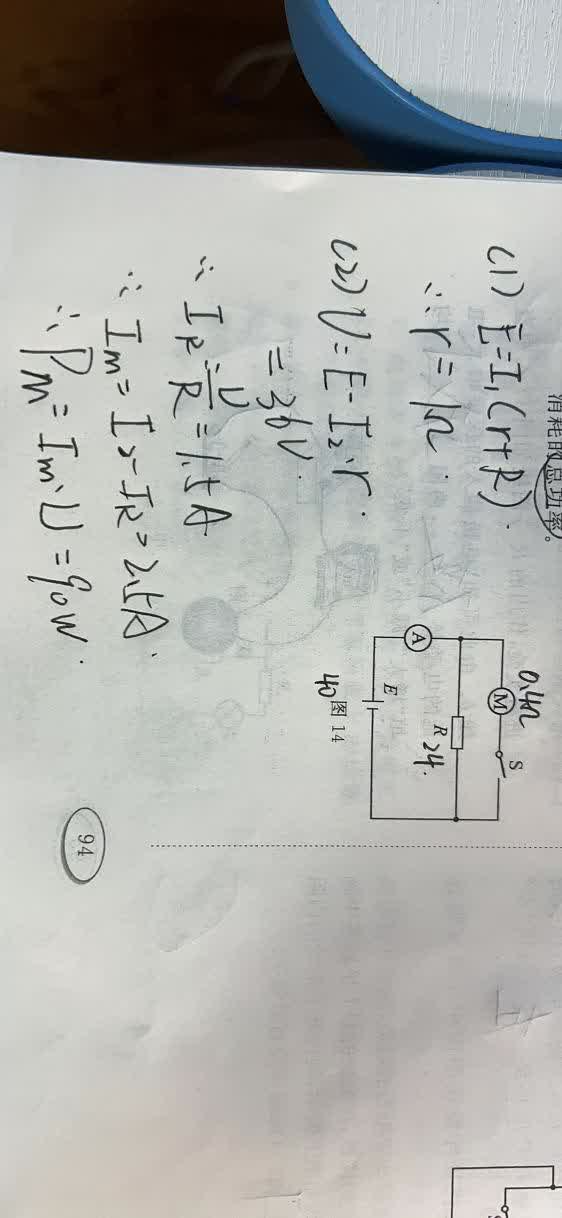 消耗的总功率。
(1) E=I₁(r+R).
∴ r=1Ω.
(2) U=E-I₂·r.
=36V.
∴ I_R=U/R=1.5A
∴ I_m=I₂-I_R=2.5A.
∴ P_m=I_m·U=90W.
0.4Ω
M
S
R 24.
A
E
40
图 14
94